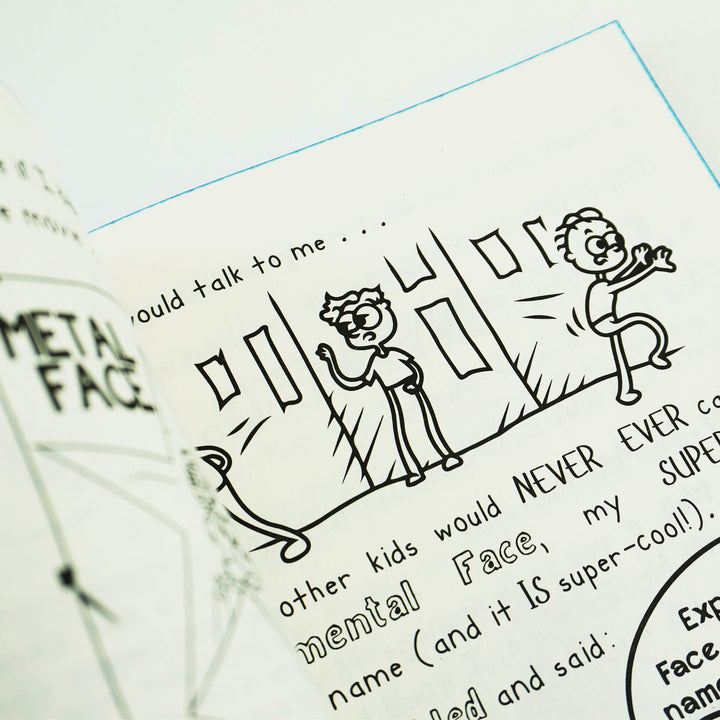 METAL
FACE
would talk to me . . .
other kids would NEVER EVER
mental Face, my SUPER
name (and it IS super-cool!).
and said:
Exp
Face
name